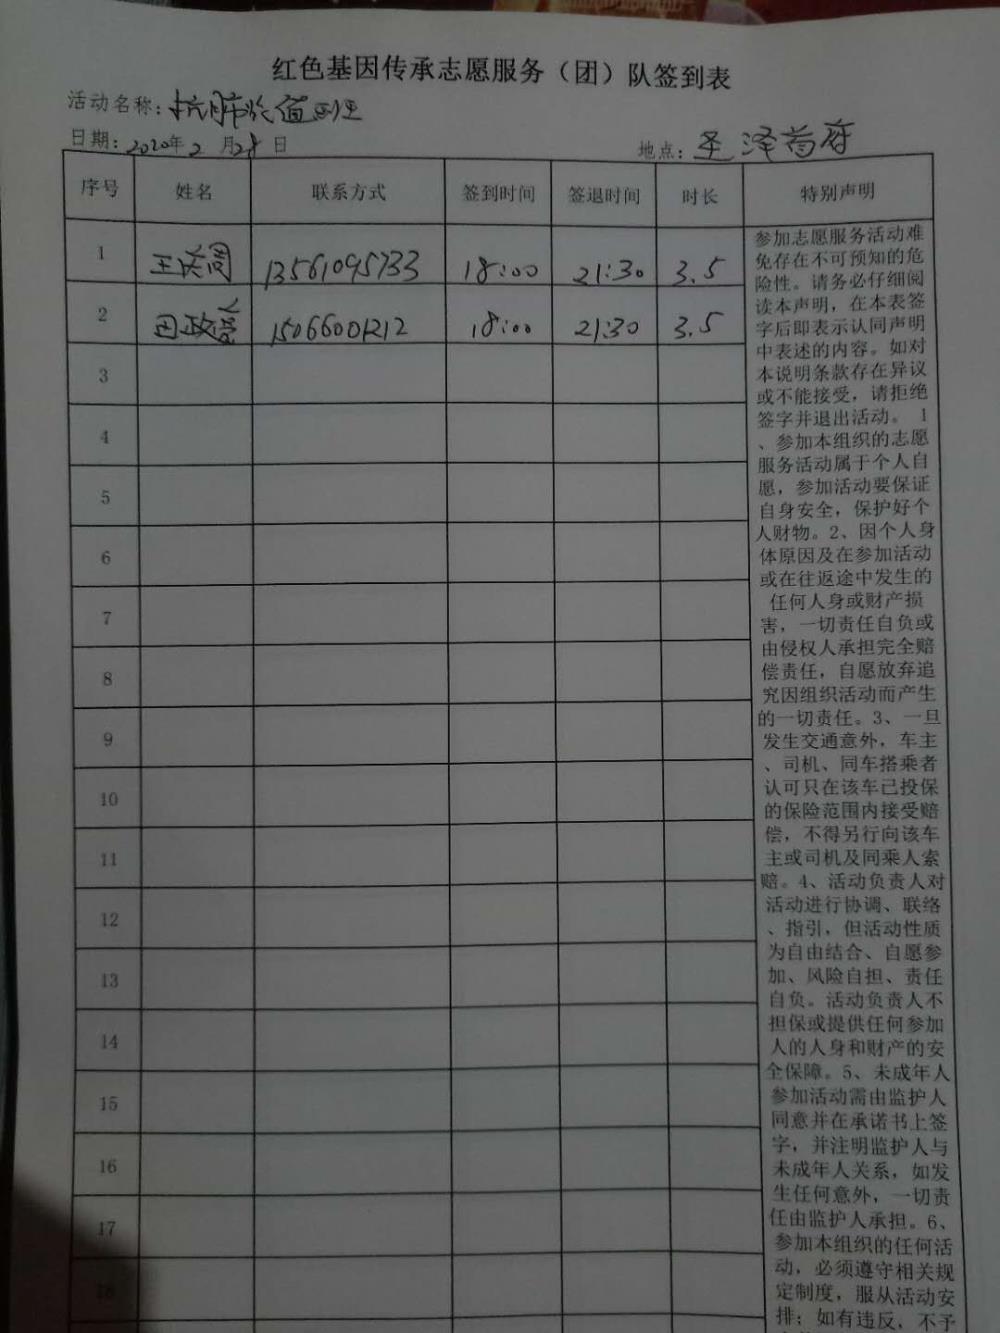 红色基因传承志愿服务（团）队签到表
活动名称：
日期：2020年2月28日 地点：圣泽首府
序号 姓名 联系方式 签到时间 签退时间 时长 特别声明
1 13561095733 18:00 21:30 3.5
2 田政 15066001212 18:00 21:30 3.5
3
4
5
6
7
8
9
10
11
12
13
14
15
16
17
18
参加志愿服务活动难
免存在不可预知的危
险性。请务必仔细阅
读本声明，在本表签
字后即表示认同声明
中表述的内容。如对
本说明条款存在异议
或不能接受，请拒绝
签字并退出活动。 1
、参加本组织的志愿
服务活动属于个人自
愿，参加活动要保证
自身安全，保护好个
人财物。2、因个人身
体原因及在参加活动
或在往返途中发生的
任何人身或财产损
害，一切责任自负或
由侵权人承担完全赔
偿责任，自愿放弃追
究因组织活动而产生
的一切责任。3、一旦
发生交通意外，车主
、司机、同车搭乘者
认可只在该车已投保
的保险范围内接受赔
偿，不得另行向该车
主或司机及同乘人索
赔。4、活动负责人对
活动进行协调、联络
、指引，但活动性质
为自由结合、自愿参
加、风险自担、责任
自负。活动负责人不
担保或提供任何参加
人的人身和财产的安
全保障。5、未成年人
参加活动需由监护人
同意并在承诺书上签
字，并注明监护人与
未成年人关系，如发
生任何意外，一切责
任由监护人承担。6、
参加本组织的任何活
动，必须遵守相关规
定制度，服从活动安
排；如有违反，不予